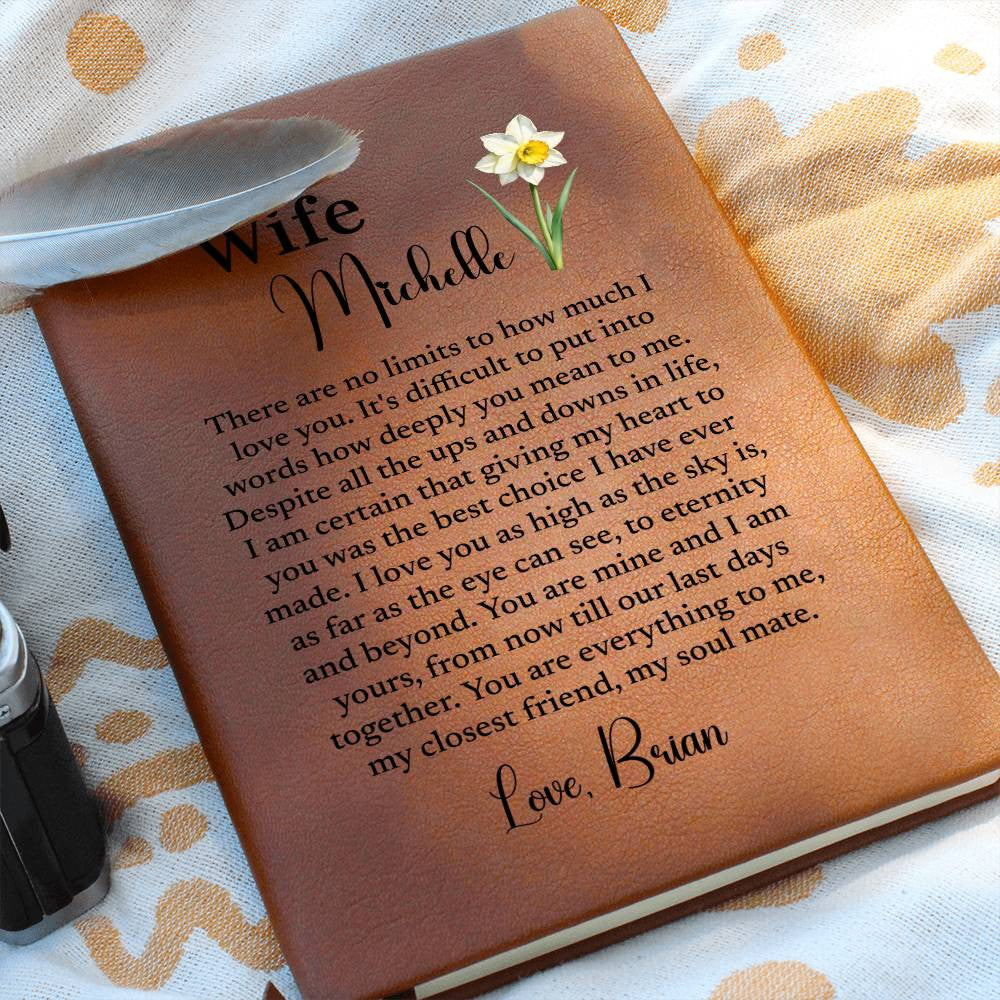 Wife
Michelle
There are no limits to how much I
love you. It's difficult to put into
words how deeply you mean to me.
Despite all the ups and downs in life,
I am certain that giving my heart to
you was the best choice I have ever
made. I love you as high as the sky is,
as far as the eye can see, to eternity
and beyond. You are mine and I am
yours, from now till our last days
together. You are everything to me,
my closest friend, my soul mate.
Love, Brian